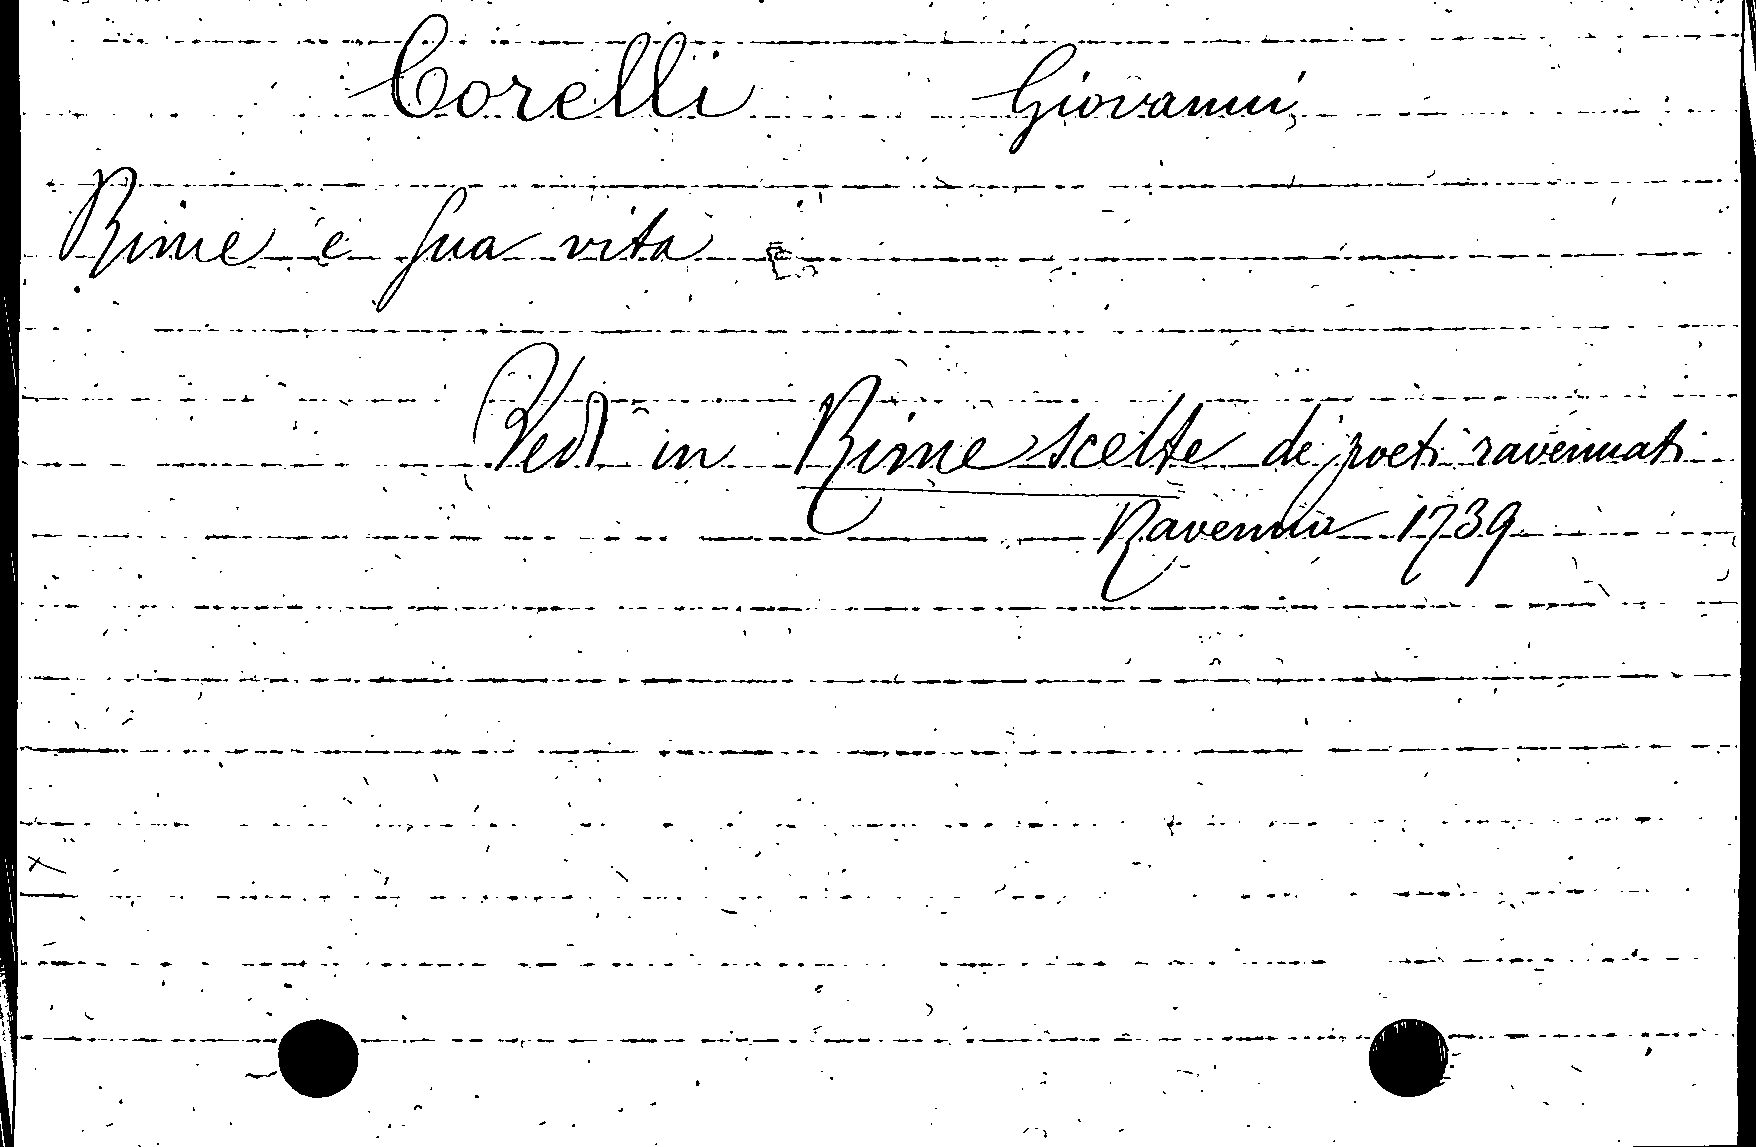 Corelli Giovanni
Rime e sua vita
Vedi in Rime scelte de' poeti ravennati
Ravenna 1739